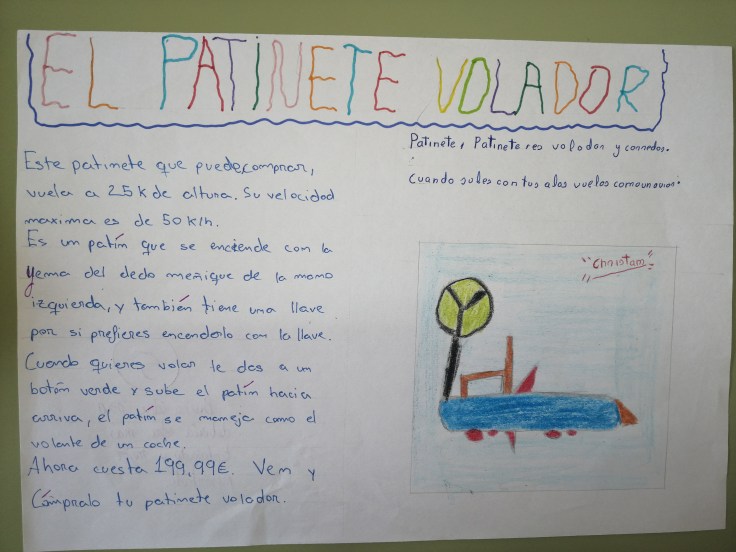 EL PATINETE VOLADOR
Este patinete que puedecomprar,
vuela a 25k de altura. Su velocidad
maxima es de 50 k/h.
Es un patín que se enciende con la
yema del dedo meñique de la mamo
izquierda, y también tiene una llave
por si prefieres encenderlo con la llave.
Cuando quieres volar le das a un
botón verde y sube el patín hacia
arriva, el patín se maneja como el
volante de un coche.
Ahora cuesta 199,99€. Ven y
Cómpralo tu patinete volador.
Patinete, Patinete res volador y
Cuando subes con tus alas vuelas como un
"Christam"